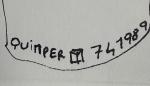 QUIMPER 7 4 1989